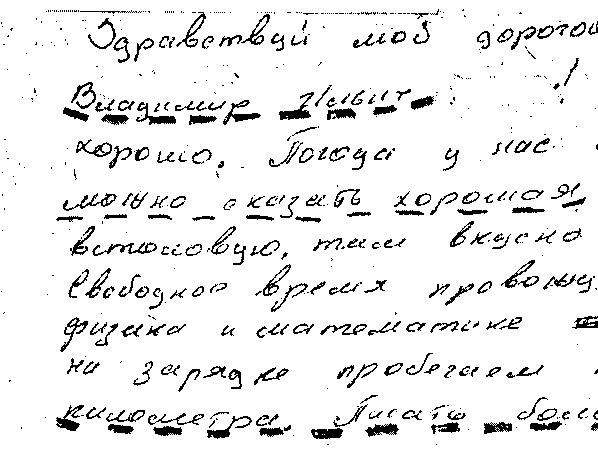 Здравствуй мой дорогой
Владимир Ильич !
хорошо. Погода у нас
можно сказать хорошая
встоловую, там вкусно
Свободное время провожу
физика и математике
на зарядке пробегаем
километра. Писать боль